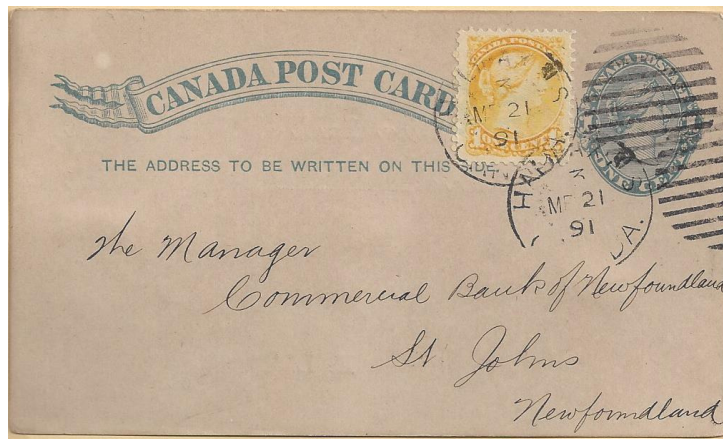 CANADA POST CARD
CANADA POSTAGE
THE ADDRESS TO BE WRITTEN ON THIS SIDE
AM
MR 21
91
HA
AM
MR 21
91
CANADA POSTAGE
The Manager
Commercial Bank of Newfoundland
St Johns
Newfoundland